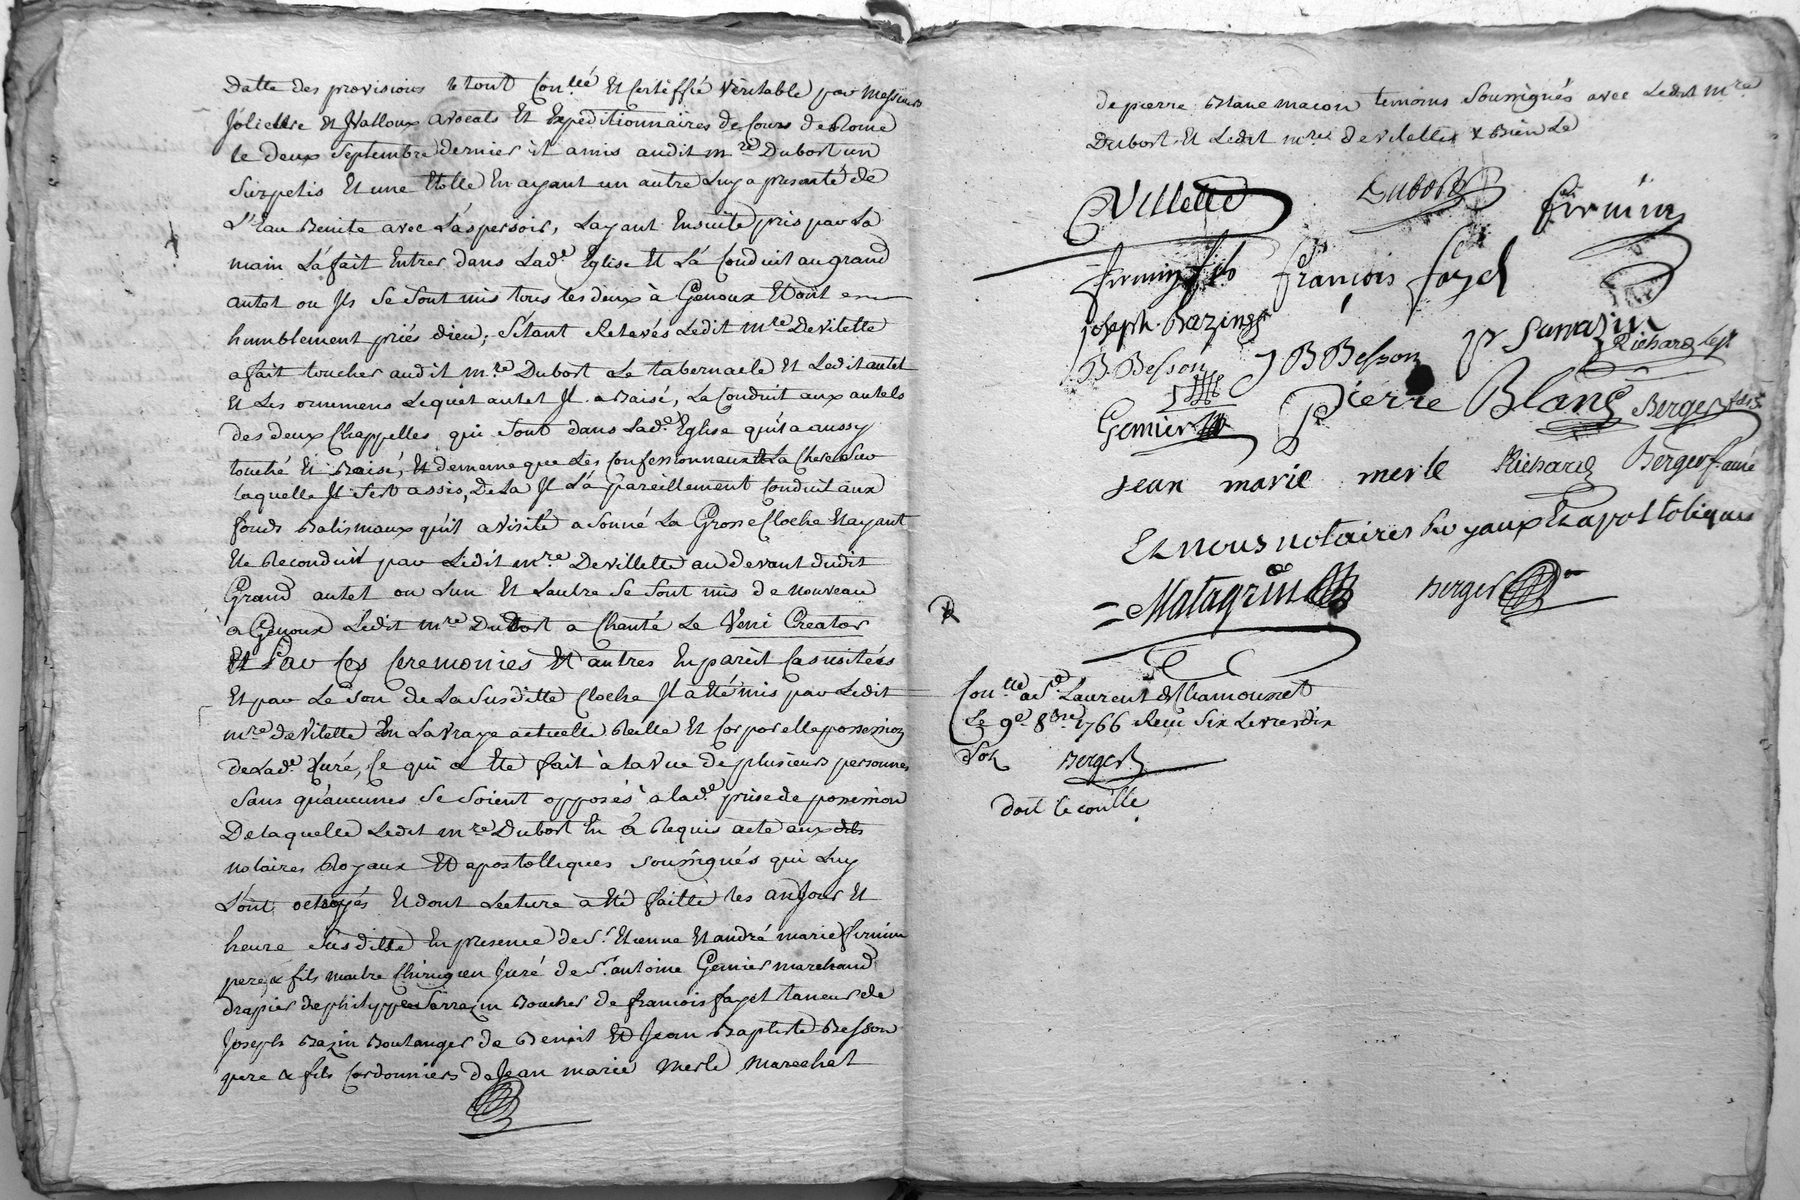 datte des provisions le tout Con.llé Et Certiffié véritable par Messieurs
Joliette Et Avocats Et Expeditionnaires de Cour de Rome
le deux Septembre dernier, a mis audit m.re Dubost un
Surpelis Et une Etolle En ayant un autre Luy a presenté de
L'Eau Benite avec L'aspersoir, Layant Ensuitte pris par La
main L'a fait Entrer dans Lad.e Eglise Et L'a Conduit au grand
autel ou Ils Se Sont mis tous les deux à Genoux Et ont
humblement priés dieu, S'étant Relevés Ledit m.re Devilette
a fait toucher audit m.re Dubost Le tabernacle Et Ledit autel
Et Les ornemens Lequel autel Il a Baisé, La Conduit aux autels
des deux Chappelles qui Sont dans Lad.e Eglise qu'il a aussy
touché Et Baisé, Et de meme que Les Confessionnaux Et La Chere Sur
laquelle Il S'est assis, De La Il L'a pareillement Conduit aux
fonds Batismaux qu'il a visité a Sonné La Grosse Cloche Et ayant
Eté Reconduit par Ledit m.re Devillette au devant dudit
Grand autel ou Lun Et Lautre Se Sont mis de nouveau
a Genoux Ledit m.re Dubost a Chanté Le Veni Creator
Et Par Ces Ceremonies Et autres En pareil Cas usitées
Et par Le Son de La Susditte Cloche Il a Eté mis par Ledit
m.re deVilette En La vraye actuelle Reelle Et Corporelle possession
de Lad.e Curé, Ce qui a Eté fait à la Vue de plusieurs personnes
Sans qu'aucunes Se Soient opposés a lad.e prise de possession
De laquelle Ledit m.re Dubost En a Requis acte aux dits
notaires Royaux Et apostolliques Soussignés qui Luy
L'ont octroyés Et dont Lecture a Eté faitte les an Jour Et
heure Susditte En presence de S.r Etienne Et andré marie firmin
pere & fils maitre Chirurgien Juré de S.r antoine Genier marchand
drapier de philyppe Sarrazin Boucher de francois fayel taneur de
Joseph Bazin Boulanger de Benoit Et Jean Baptiste Besson
pere & fils Cordonniers de Jean marie Merle Marechal
de pierre Blanc macon temoins Soussignés avec Ledit m.re
Dubost Et Ledit m.re deVilette
Villette
Dubost
firmin
firmin fils
françois fayel
joseph. Bazin
B. Besson
J B Besson
pr Sarrazin
Richard
Genier
Pierre Blanc
Berger
jean marie merle
Richard
Berger f. ainé
Et nous notaires Royaux Et apostoliques
Matagrin
Berger
Con.llé a S.t Laurent de Chamousset
Le 9e 8bre 1766 Reçu Six Livres dix
Sols
Berger
doit le con.lle